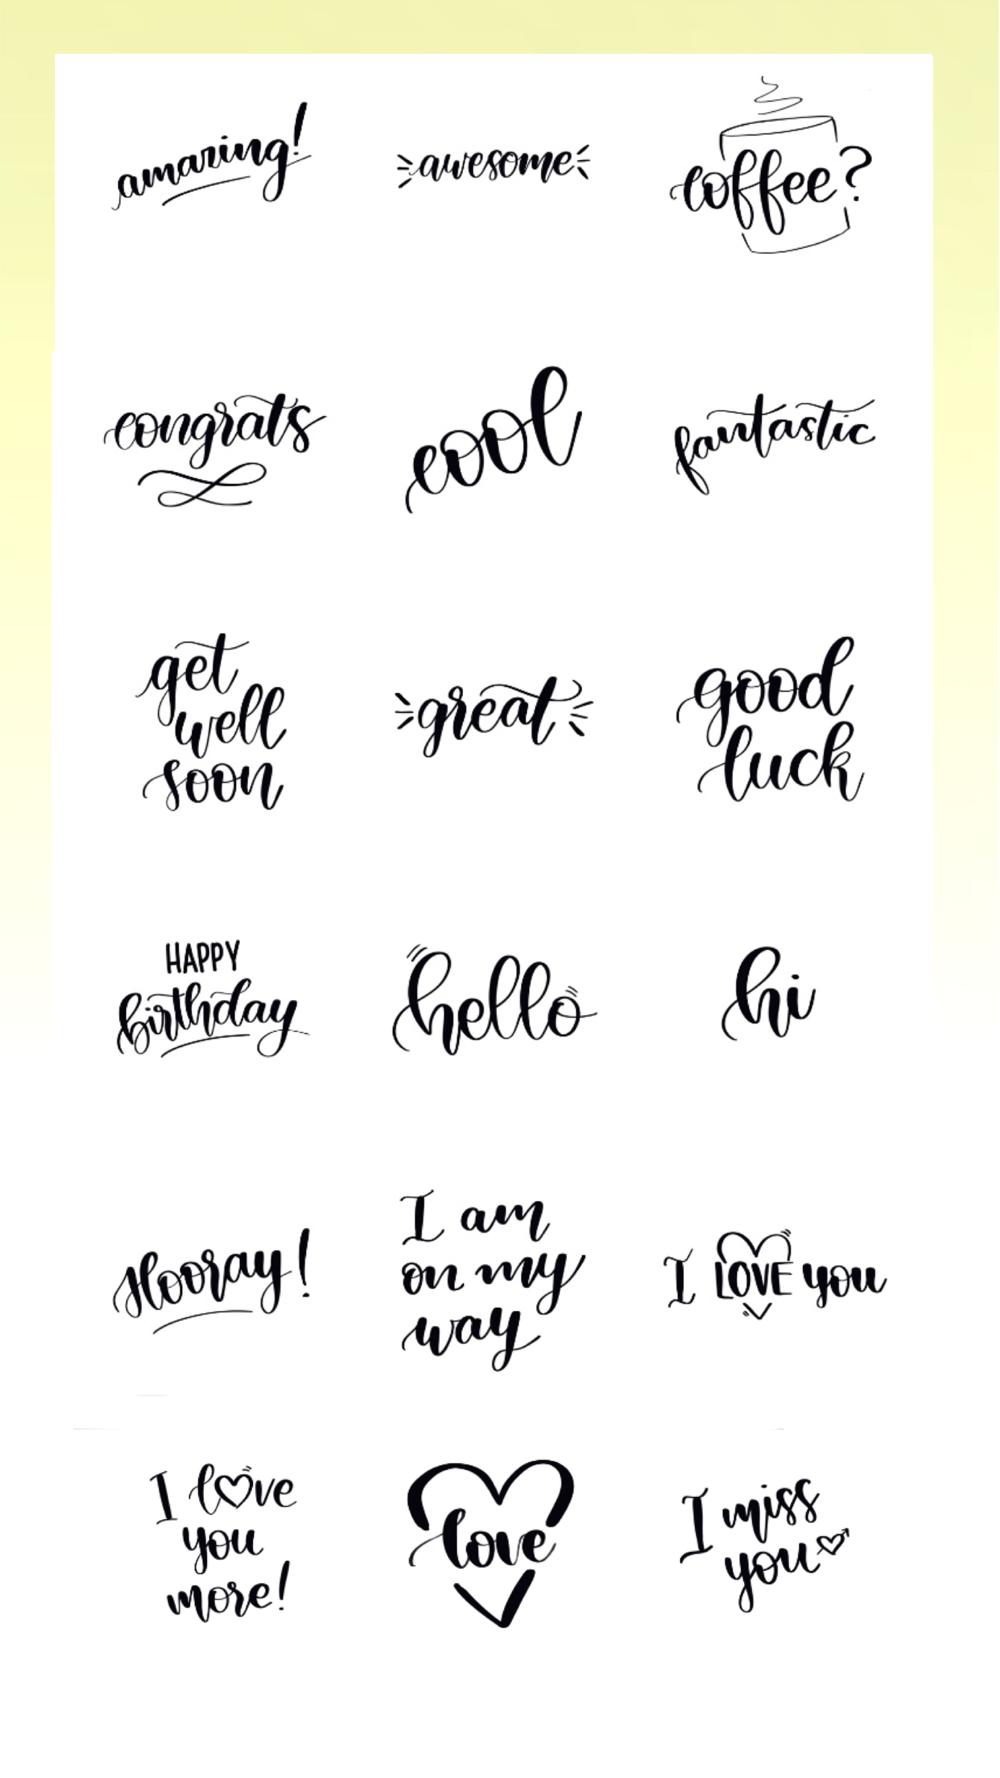 amazing!
awesome
coffee?
congrats
cool
fantastic
get
well
soon
great
good
luck
HAPPY
birthday
hello
hi
Hooray!
I am
on my
way
I LOVE you
I love
you
more!
love
I miss
you